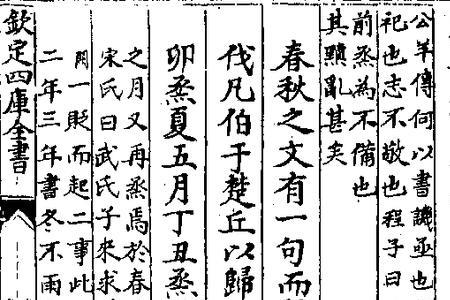 公羊傳何以書譏亟也
祀也志不敬也程子曰
前烝為不備也
其黷亂甚矣
春秋之文有一句而
伐凡伯于楚丘以歸
卯烝夏五月丁丑烝
之月又再烝焉於春
宋氏曰武氏子來求
一貶而起二事此
二年三年書冬不雨
欽定四庫全書